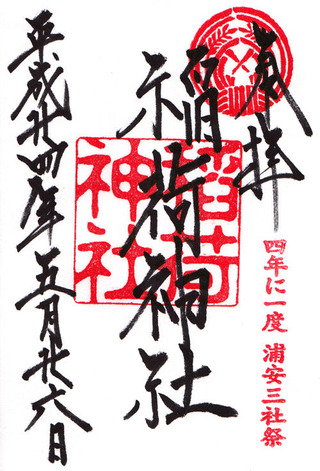 奉拝
四年に一度 浦安三社祭
稲荷神社
稲荷神社
平成廿四年五月廿六日